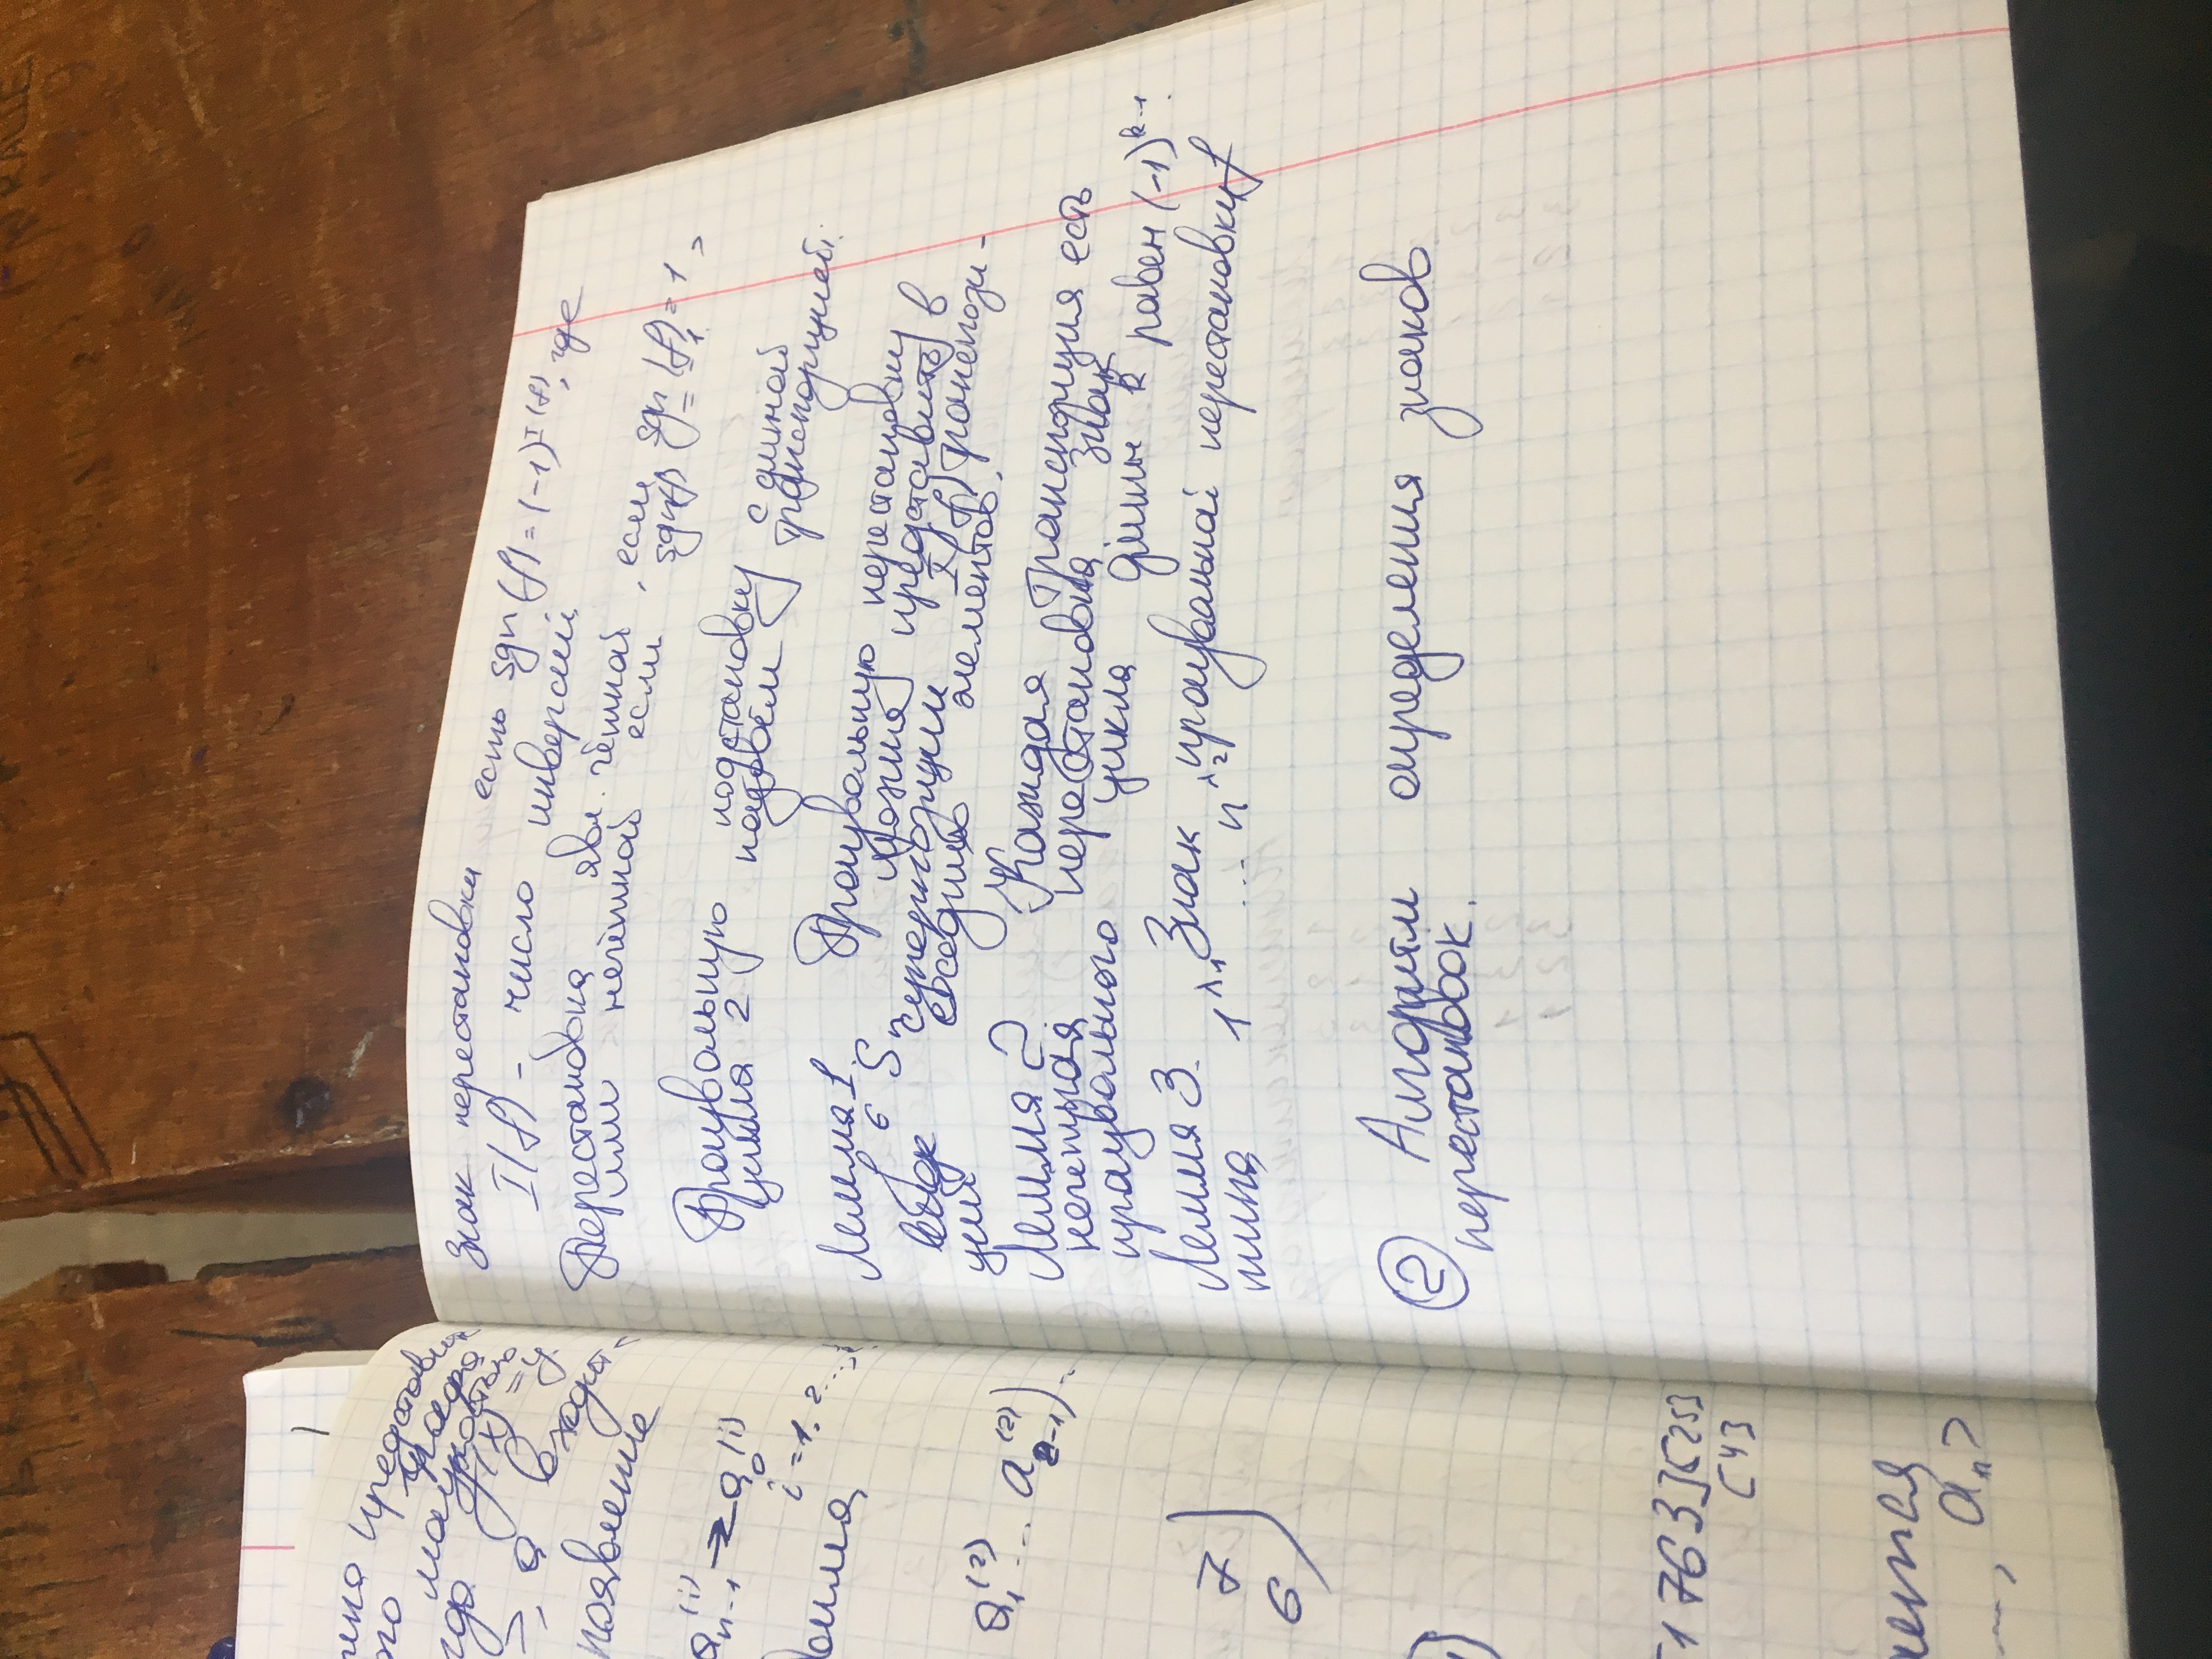 представить
графа
мощностью
(x) = y
>, а входит
появление
a_{n-1}^{(i)} → a_0^{(i)}
i = 1, 2...,
a_1^{(2)} ... a_{2-1}^{(2)})
7
6)
[1 7 6 3] [25]
[4]
ается
..., a_n>
Знак перестановки есть sgn(f) = (-1)^{I(f)}, где
I(f) - число инверсий.
Перестановка явл. чётной, если sgn(f) = 1,
или нечётной если sgn(f) = -1.
Произвольную подстановку с длиной
цикла 2 назовём транспозицией.
Лемма 1. Произвольную перестановку
f ∈ S_n можно представить в
виде суперпозиции I(f) транспози-
ций соседних элементов.
Лемма 2. Каждая транспозиция есть
нечётная перестановка. Знак
произвольного цикла длины k равен (-1)^{k-1}.
Лемма 3. Знак произвольной перестановки f
типа 1^{λ_1} ... n^{λ_2}
② Алгоритм определения знаков
перестановок.